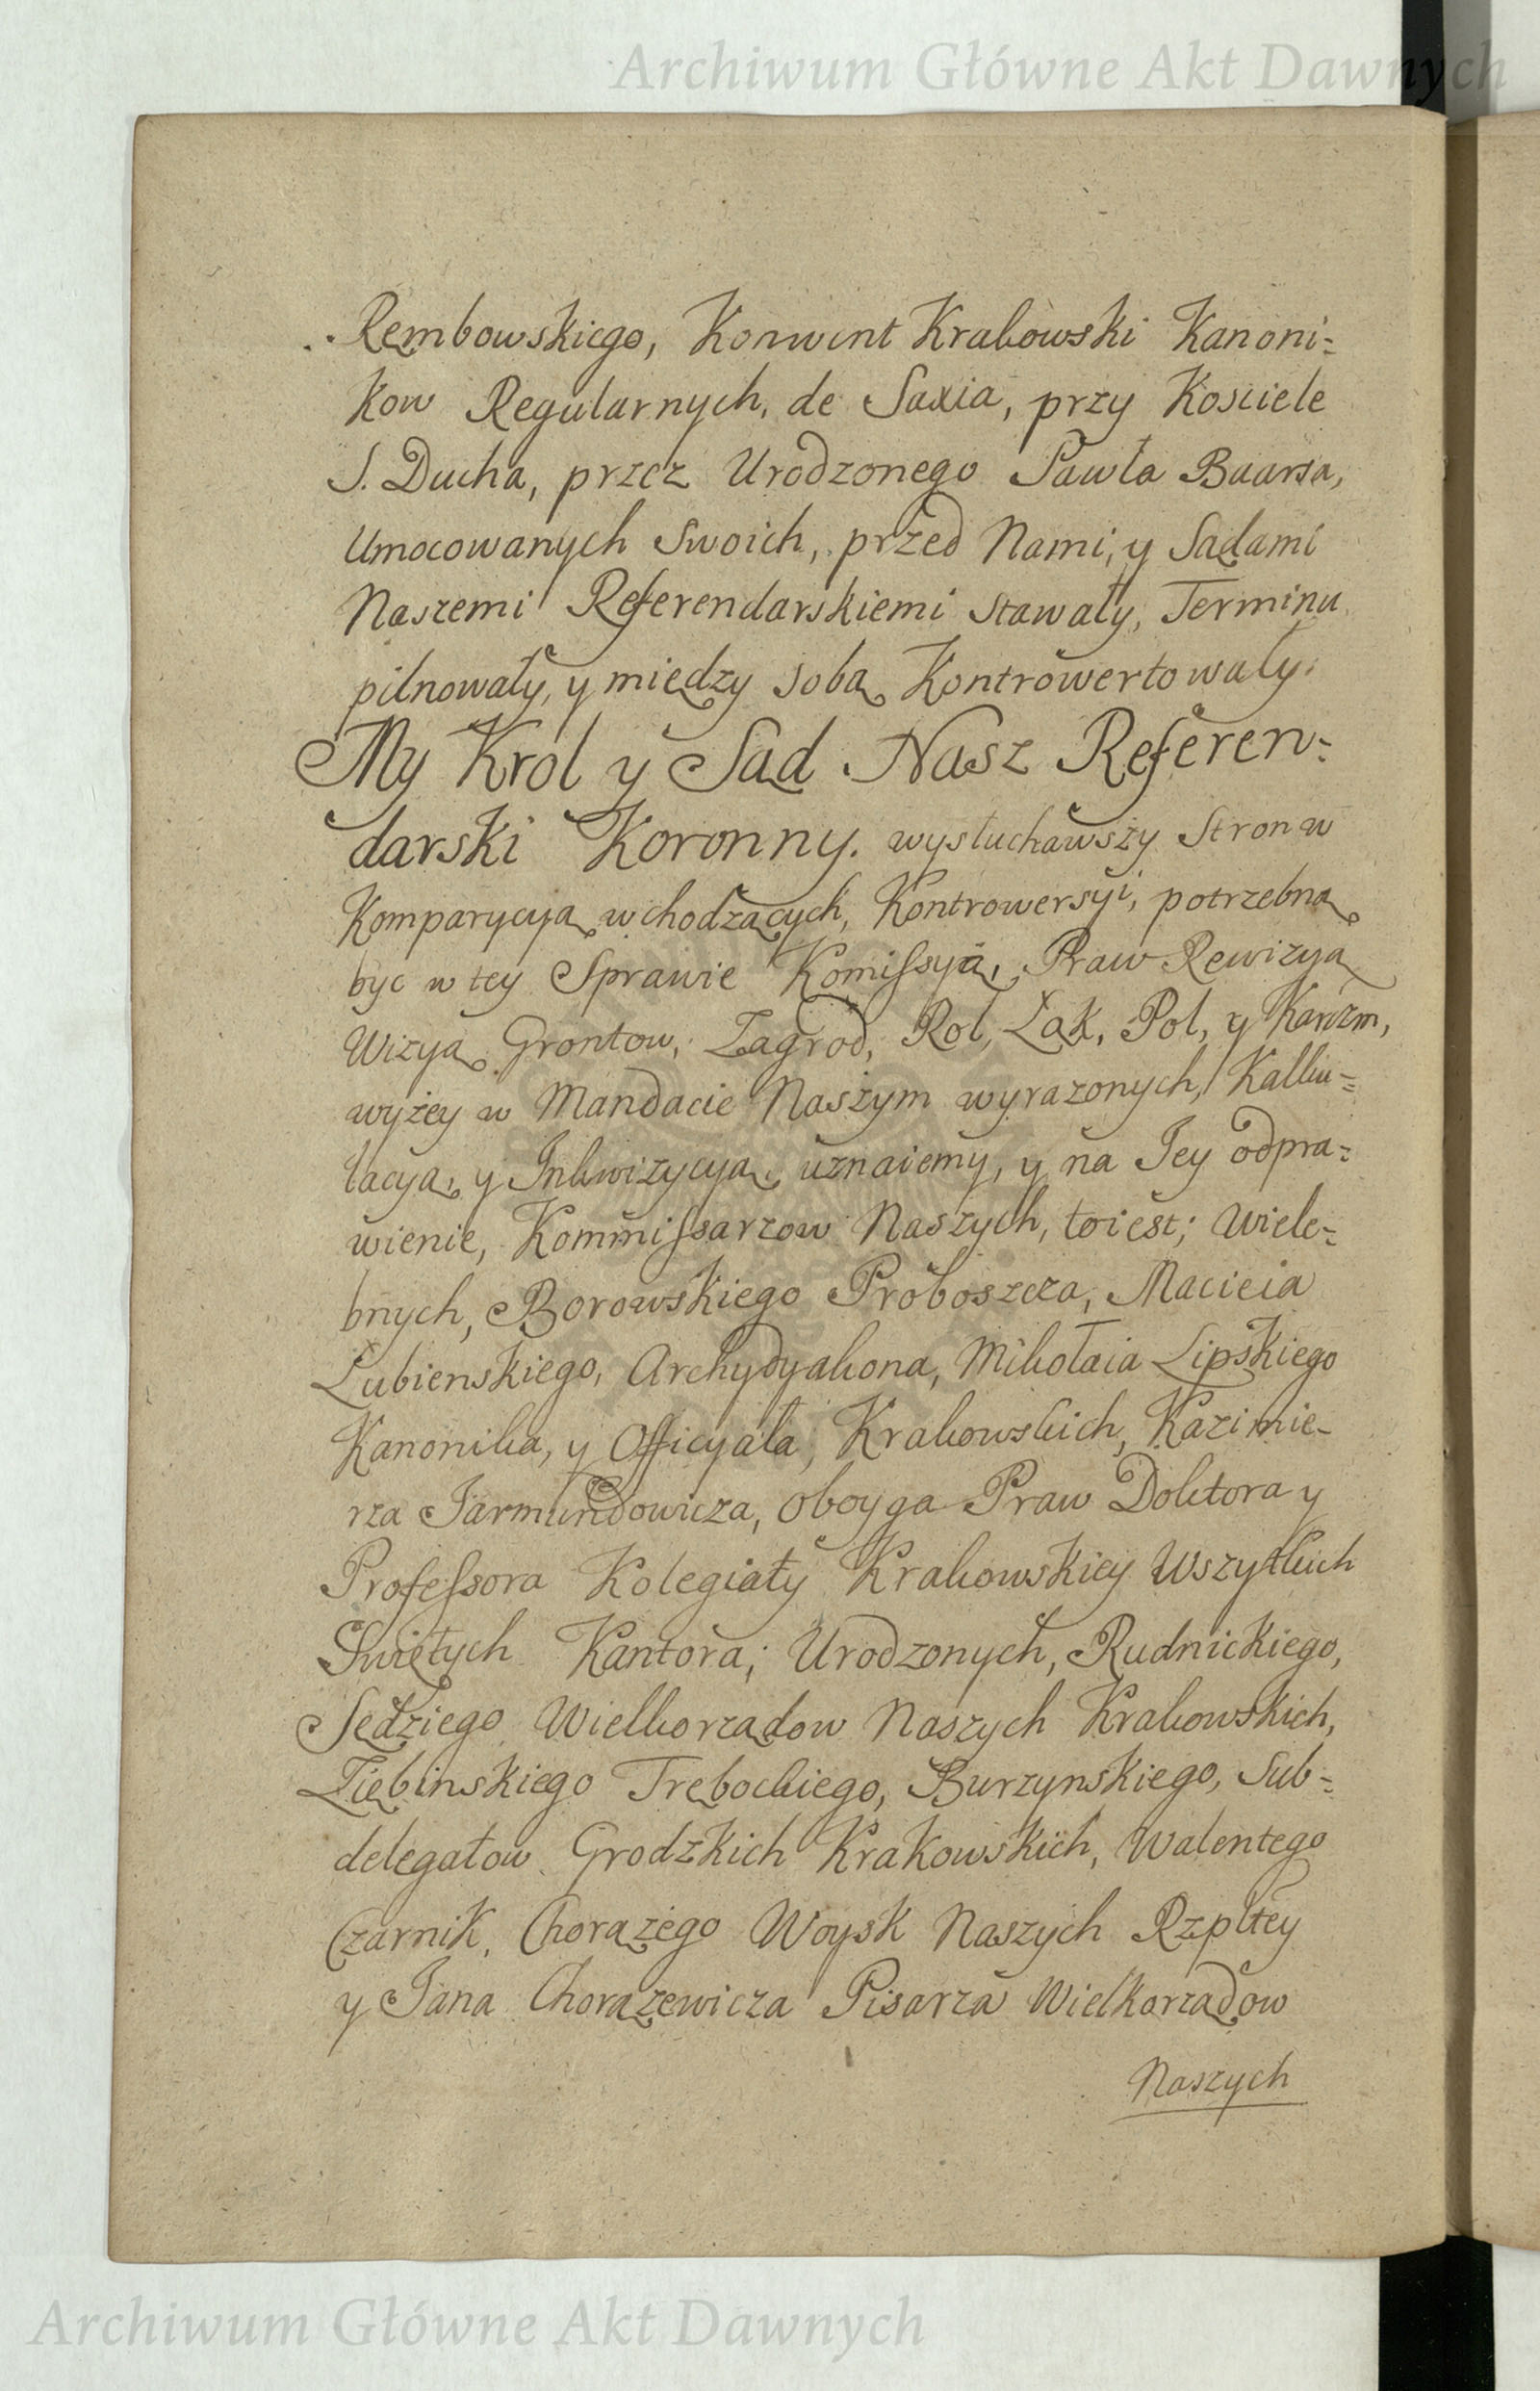 Archiwum Główne Akt Dawnych
Rembowskiego, Konwent Krakowski Kanoni=
kow Regularnych, de Saxia, przy Kosciele
S. Ducha, przez Urodzonego Pawła Baarsa,
Umocowanych Swoich, przed Nami, y Sądami
Naszemi Referendarskiemi stawały, Terminu
pilnowały, y między sobą Kontrowertowały.
My Krol y Sąd Nasz Referen=
darski Koronny. wysłuchawszy Stron w
Komparycyą wchodzących, Kontrowersyi, potrzebną
byc w tey Sprawie Komissyą, Praw Rewizyą
Wizyą Grontow, Zagrod, Rol, Łąk, Pol, y Karczm,
wyżey w Mandacie Naszym wyrażonych, Kalku=
lacyą, y Inkwizycyą, uznaiemy, y na Jey odpra=
wienie, Kommissarzow Naszych, toiest; Wiele=
bnych, Borowskiego Proboszcza, Macieia
Łubienskiego, Archydyakona, Mikołaia Lipskiego
Kanonika, y Officyała, Krakowskich, Kazimie-
rza Jarmundowicza, oboyga Praw Doktora y
Professora Kolegiaty Krakowskiey Wszytkich
Swiętych Kantora; Urodzonych, Rudnickiego,
Sędziego Wielkorządow Naszych Krakowskich,
Ziębinskiego Trebockiego, Burzynskiego, Sub=
delegatow Grodzkich Krakowskich, Walentego
Czarnik, Chorążego Woysk Naszych Rzpltey
y Jana Chorążewicza Pisarza Wielkorządow
Naszych
Archiwum Główne Akt Dawnych